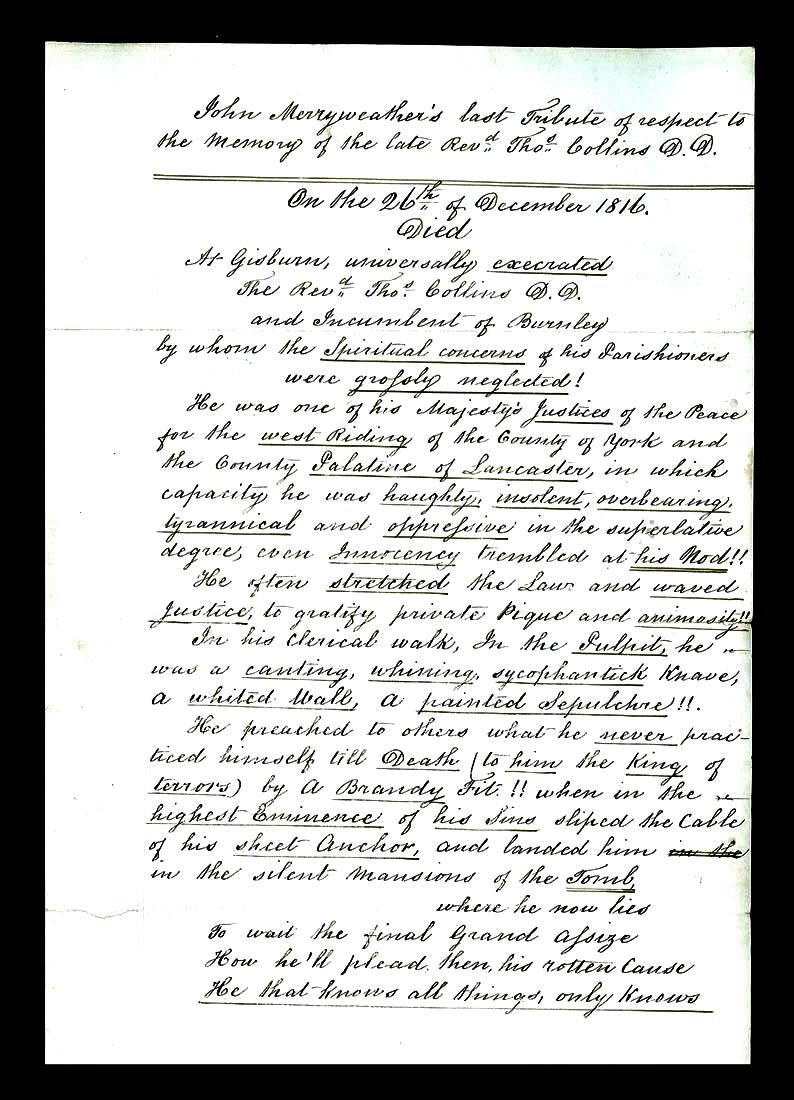 John Merryweather's last Tribute of respect to
the Memory of the late Revd Thos Collins D.D.
On the 26th of December 1816.
Died
At Gisburn, universally execrated
The Revd Thos Collins D.D.
and Incumbent of Burnley
by whom the Spiritual concerns of his Parishioners
were grossly neglected!
He was one of his Majesty's Justices of the Peace
for the west Riding of the County of York and
the County Palatine of Lancaster, in which
capacity he was haughty, insolent, overbearing,
tyrannical and oppressive in the superlative
degree, even Innocency trembled at his Nod!!
He often stretched the Law and waved
Justice, to gratify private Pique and animosity!!
In his Clerical walk, In the Pulpit, he
was a canting, whining, sycophantick Knave,
a whited Wall, a painted Sepulchre!!.
He preached to others what he never prac-
ticed himself till Death (to him the King of
terrors) by a Brandy Fit!! when in the
highest Eminence of his Sins sliped the Cable
of his sheet Anchor, and landed him in the
in the silent Mansions of the Tomb,
where he now lies
To wait the final Grand Assize
How he'll plead then, his rotten Cause
He that knows all things, only Knows